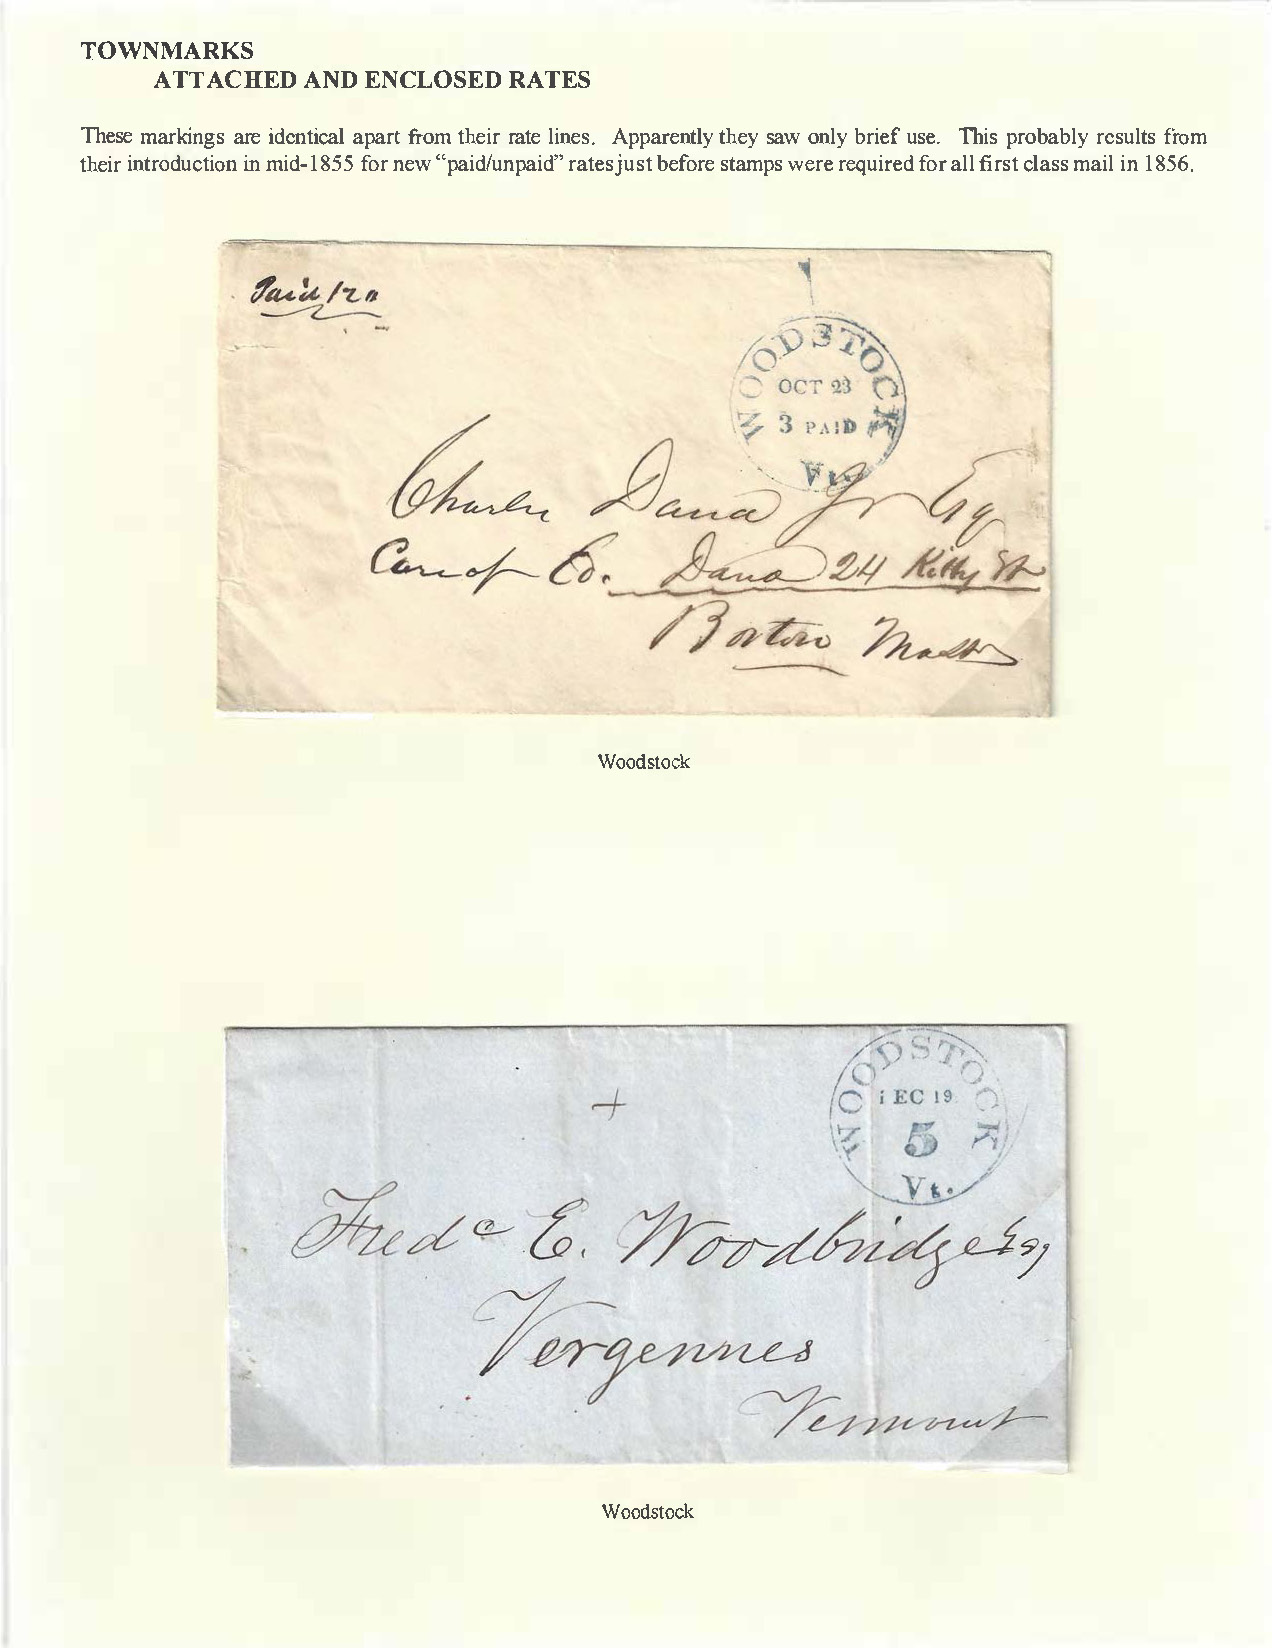 TOWNMARKS
ATTACHED AND ENCLOSED RATES
These markings are identical apart from their rate lines. Apparently they saw only brief use. This probably results from
their introduction in mid-1855 for new “paid/unpaid” rates just before stamps were required for all first class mail in 1856.
Paid
WOODSTOCK
OCT 23
3 PAID
Vt.
Charles Dana Jr Esq
Care of Ed. Dana 24 Kilby St
Boston Mass
Woodstock
WOODSTOCK
EC 19
5
Vt.
Fredc E. Woodbridge Esq
Vergennes
Vermont
Woodstock